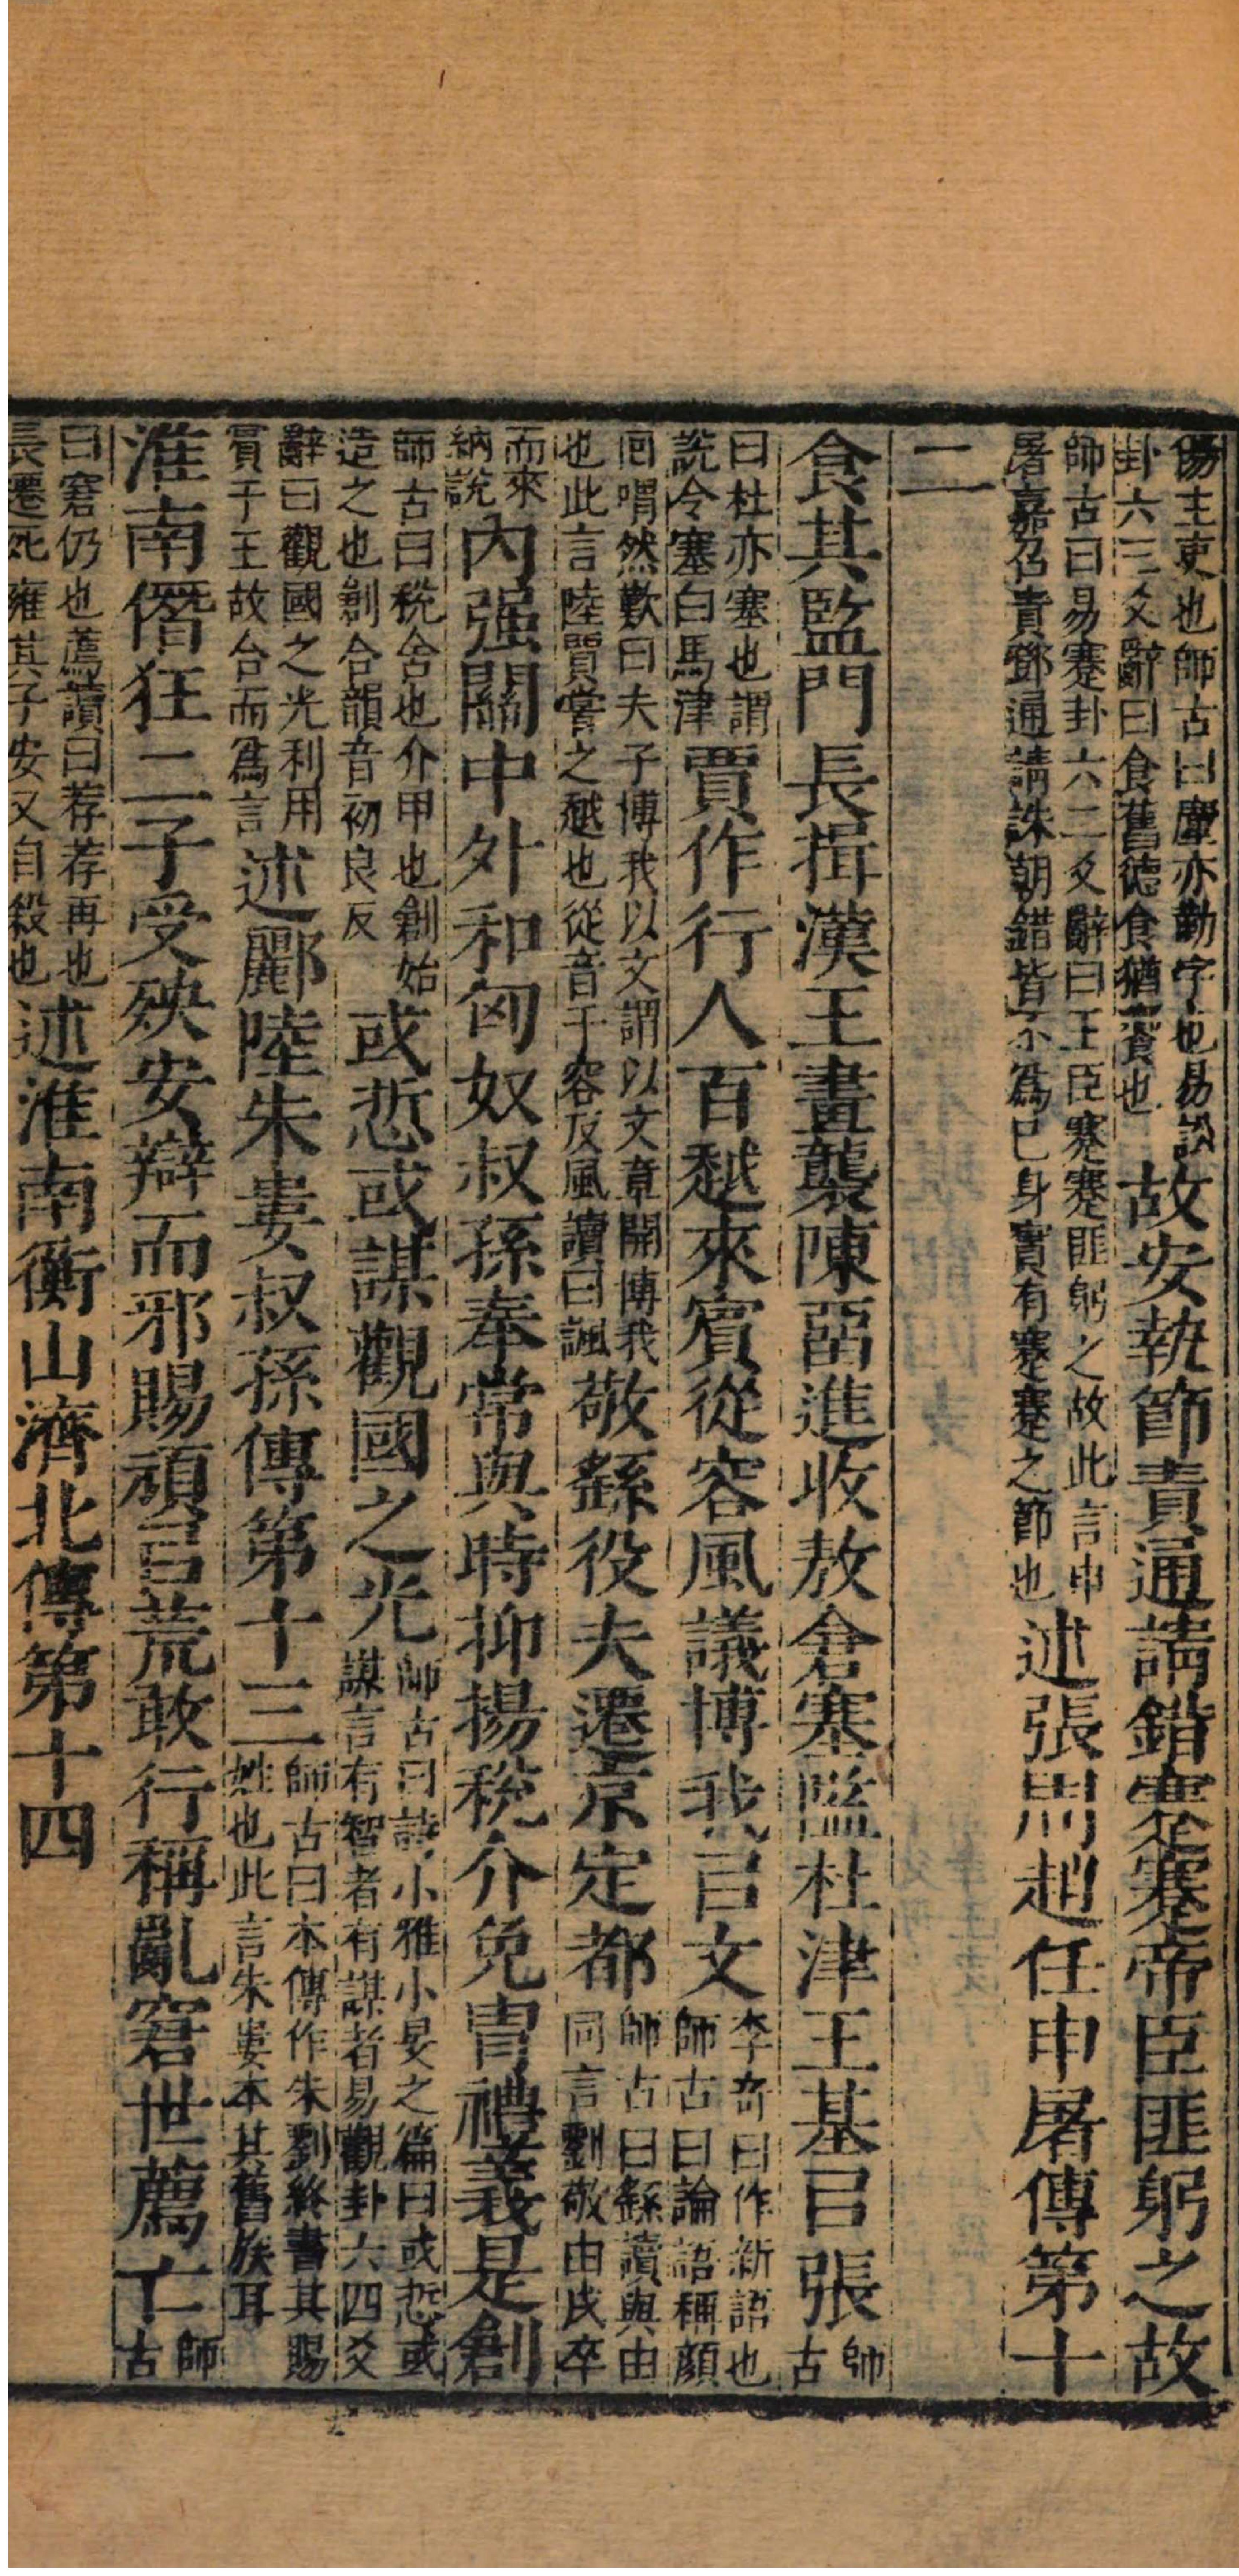 傷主吏也師古曰廑亦勤字也易訟
卦六三爻辭曰食舊德食猶饗也
故安執節責通請錯蹇蹇帝臣匪躬之故
師古曰易蹇卦六二爻辭曰王臣蹇蹇匪躬之故此言申
屠嘉召責鄧通請誅朝錯皆不爲己身實有蹇蹇之節也
述張周趙任申屠傳第十
二
食其監門長揖漢王畫襲陳畱進收敖倉塞隘杜津王基㠯張
師古
曰杜亦塞也謂
說令塞白馬津
賈作行人百越來賓從容風議博我㠯文
李奇曰作新語也
師古曰論語稱顔
回喟然歎曰夫子博我以文謂以文章開博我
也此言陸賈嘗之越也從音千容反風讀曰諷
敬繇役夫遷京定都
師古曰繇讀與由
同言劉敬由戍卒
而來
納說
內强關中外和匈奴叔孫奉常與時抑揚稅介免冑禮義是創
師古曰稅舍也介甲也創始
造之也創合韻音初良反
或悊或謀觀國之光
師古曰詩小雅小旻之篇曰或悊或
謀言有智者有謀者易觀卦六四爻
辭曰觀國之光利用
賓于王故合而爲言
述酈陸朱婁叔孫傳第十三
師古曰本傳作朱劉終書其賜
姓也此言朱婁本其舊族耳
淮南僭狂二子受殃安辯而邪賜頑㠯荒敢行稱亂窘世薦亡
師古
曰窘仍也薦讀曰荐荐再也
長遷死雍其子安又自殺也
述淮南衡山濟北傳第十四